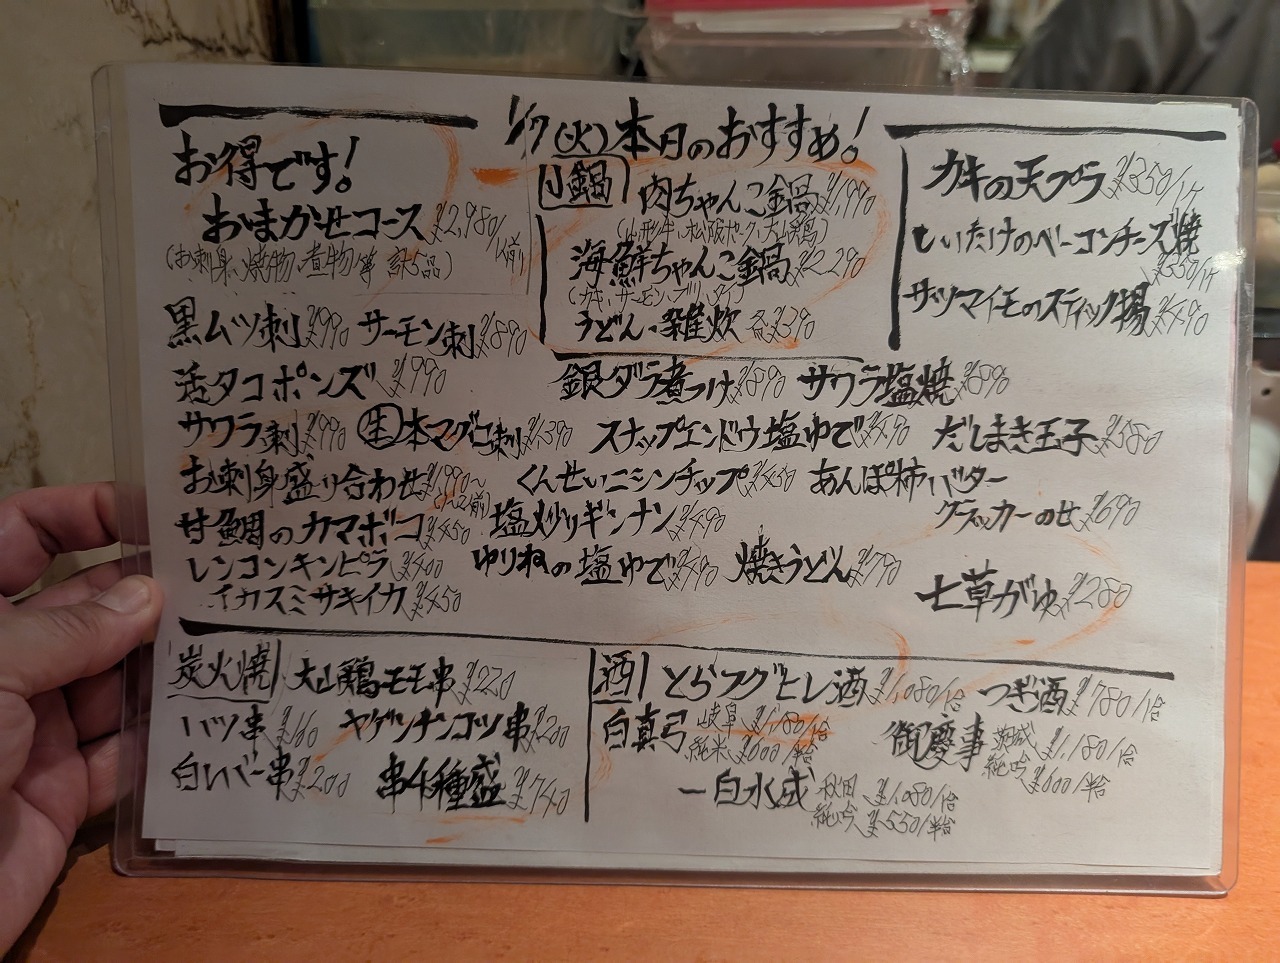 1/7(火)本日のおすすめ!
お得です!
おまかせコース ¥2,980/1人前
(お刺身、焼物、煮物等 計5品)
小鍋 肉ちゃんこ鍋 ¥1,990
(山形牛、松阪ポーク、大山鶏)
海鮮ちゃんこ鍋 ¥2,290
(カキ、サーモン、ブリ、タイ)
うどん、雑炊 各¥390
カキの天プラ ¥350/1ケ
しいたけのベーコンチーズ焼
¥350/1ケ
サツマイモのスティック揚 ¥490
黒ムツ刺 ¥990 サーモン刺 ¥890
活タコポンズ ¥990 銀ダラ煮つけ ¥890 サワラ塩焼 ¥890
サワラ刺 ¥990 生本マグロ刺 ¥1,390 スナップエンドウ塩ゆで ¥490 だしまき玉子 ¥580
お刺身盛り合わせ ¥1,990〜 くんせいニシンチップ ¥450 あんぽ柿バター
クラッカーのせ ¥690
甘鯛のカマボコ ¥450 塩炒りギンナン ¥490
レンコンキンピラ ¥400 ゆりねの塩ゆで ¥490 焼きうどん ¥790
イカスミサキイカ ¥450 七草がゆ ¥280
炭火焼 大山鶏モモ串 ¥220
ハツ串 ¥160 ヤゲンナンコツ串 ¥200
白レバー串 ¥200 串4種盛 ¥740
酒 とらフグヒレ酒 ¥1,080/1合 つぎ酒 ¥780/1合
白真弓 岐阜 ¥1,180/1合
純米 ¥600/半合
御慶事 茨城 ¥1,180/1合
純吟 ¥600/半合
一白水成 秋田 ¥1,080/1合
純吟 ¥550/半合